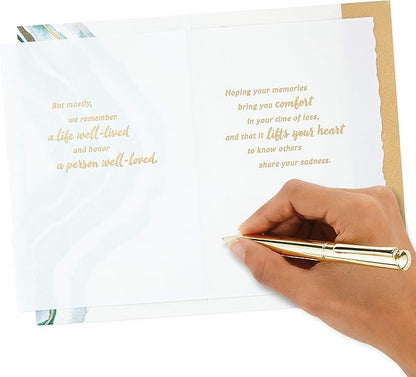 But mostly,
we remember
a life well-lived
and honor
a person well-loved.
Hoping your memories
bring you comfort
in your time of loss,
and that it lifts your heart
to know others
share your sadness.